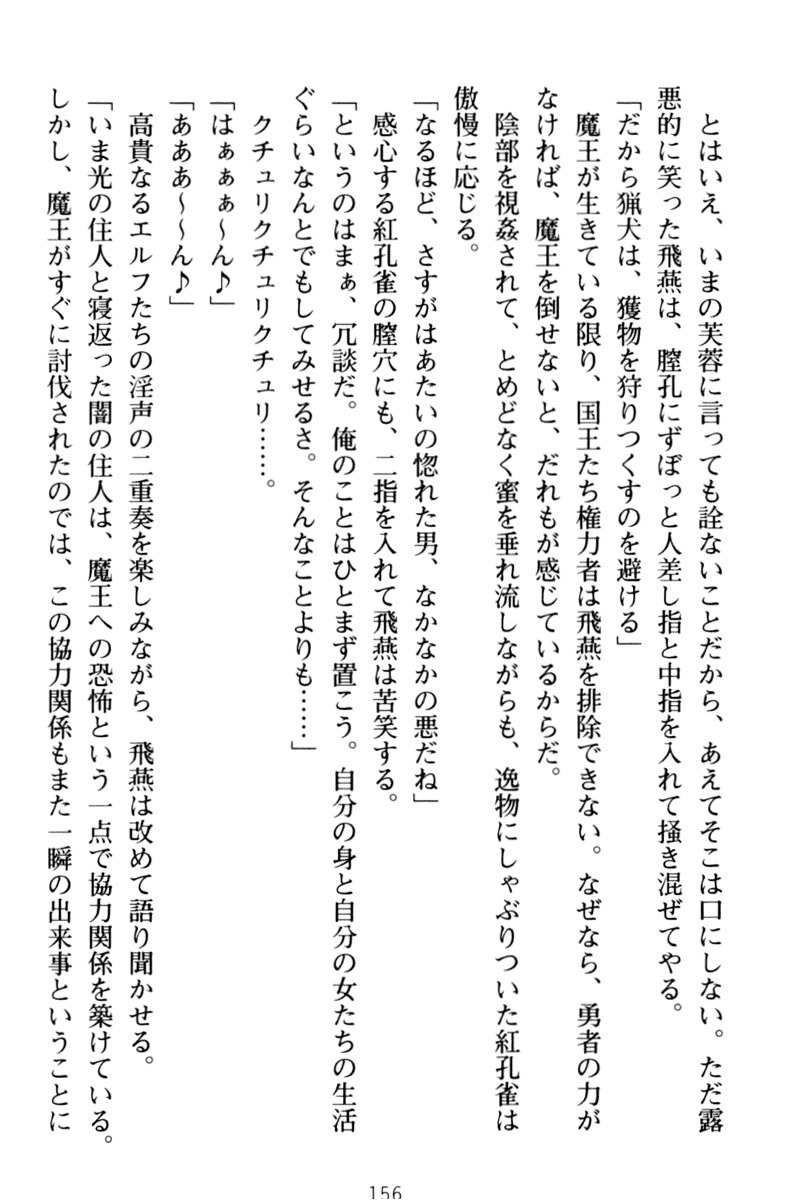 とはいえ、いまの芙蓉に言っても詮ないことだから、あえてそこは口にしない。ただ露
悪的に笑った飛燕は、膣孔にずぼっと人差し指と中指を入れて掻き混ぜてやる。
「だから猟犬は、獲物を狩りつくすのを避ける」
魔王が生きている限り、国王たち権力者は飛燕を排除できない。なぜなら、勇者の力が
なければ、魔王を倒せないと、だれもが感じているからだ。
陰部を視姦されて、とめどなく蜜を垂れ流しながらも、逸物にしゃぶりついた紅孔雀は
傲慢に応じる。
「なるほど、さすがはあたいの惚れた男、なかなかの悪だね」
感心する紅孔雀の膣穴にも、二指を入れて飛燕は苦笑する。
「というのはまぁ、冗談だ。俺のことはひとまず置こう。自分の身と自分の女たちの生活
ぐらいなんとでもしてみせるさ。そんなことよりも……」
クチュリクチュリクチュリ……。
「はぁぁぁ～ん♪」
「あああ～～ん♪」
高貴なるエルフたちの淫声の二重奏を楽しみながら、飛燕は改めて語り聞かせる。
「いま光の住人と寝返った闇の住人は、魔王への恐怖という一点で協力関係を築けている。
しかし、魔王がすぐに討伐されたのでは、この協力関係もまた一瞬の出来事ということに
156